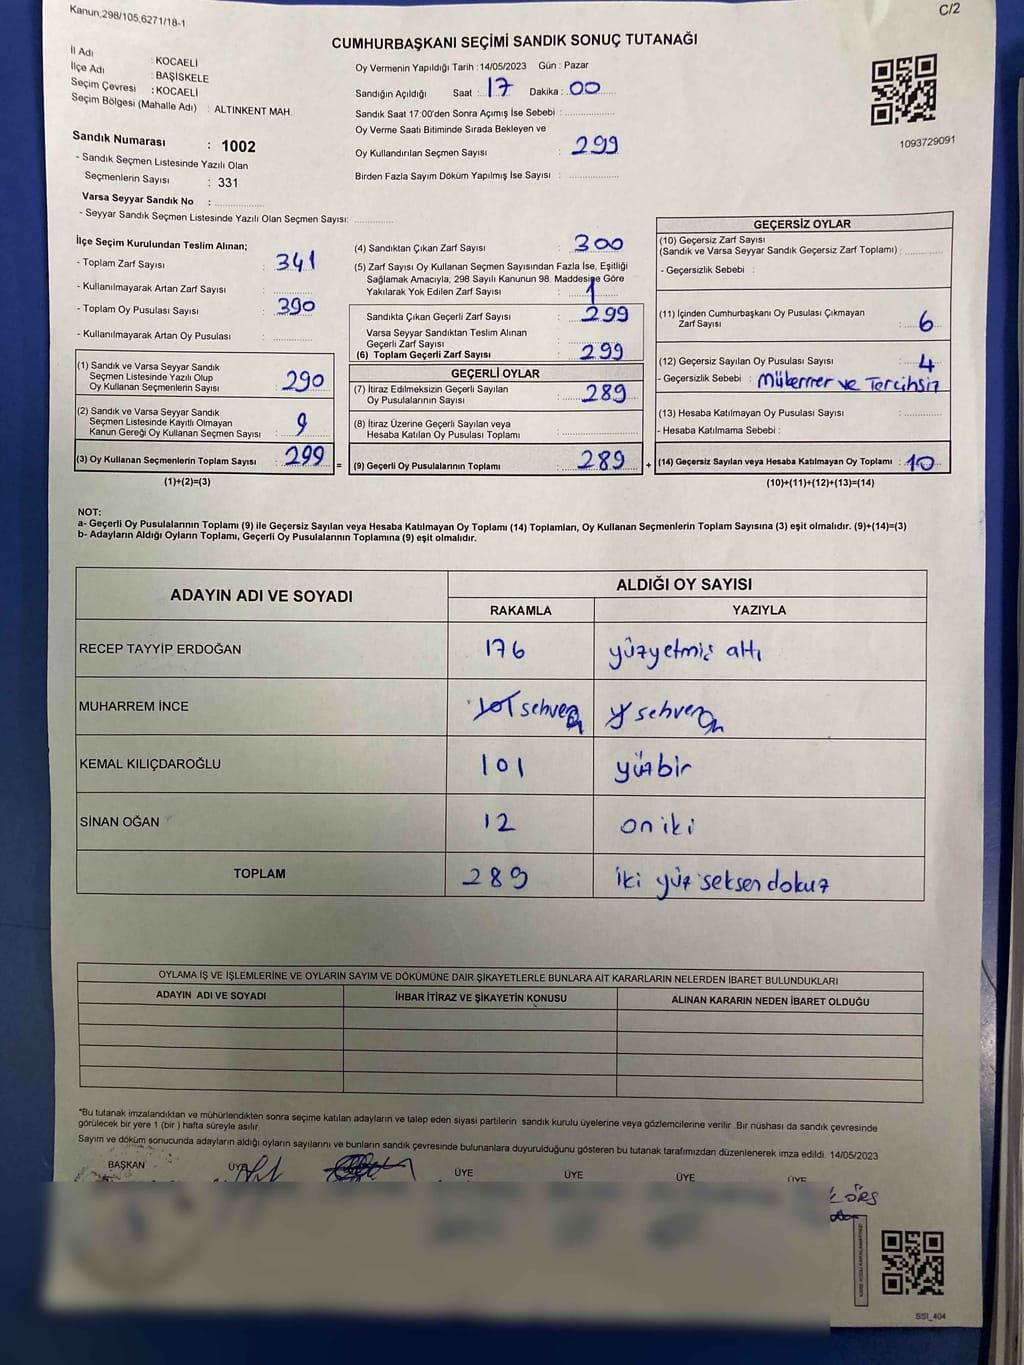 Kanun;298/105,6271/18-1
C/2
CUMHURBAŞKANI SEÇİMİ SANDIK SONUÇ TUTANAĞI
İl Adı : KOCAELİ
İlçe Adı : BAŞİSKELE
Seçim Çevresi : KOCAELİ
Seçim Bölgesi (Mahalle Adı) : ALTINKENT MAH.
Sandık Numarası : 1002
- Sandık Seçmen Listesinde Yazılı Olan
Seçmenlerin Sayısı : 331
Varsa Seyyar Sandık No :
- Seyyar Sandık Seçmen Listesinde Yazılı Olan Seçmen Sayısı:
Oy Vermenin Yapıldığı Tarih :14/05/2023 Gün : Pazar
Sandığın Açıldığı Saat : 17 Dakika : 00
Sandık Saat 17:00'den Sonra Açımış İse Sebebi :
Oy Verme Saati Bitiminde Sırada Bekleyen ve
Oy Kullandırılan Seçmen Sayısı : 299
Birden Fazla Sayım Döküm Yapılmış İse Sayısı :
1093729091
İlçe Seçim Kurulundan Teslim Alınan;
- Toplam Zarf Sayısı : 341
- Kullanılmayarak Artan Zarf Sayısı :
- Toplam Oy Pusulası Sayısı : 390
- Kullanılmayarak Artan Oy Pusulası :
(1) Sandık ve Varsa Seyyar Sandık
Seçmen Listesinde Yazılı Olup
Oy Kullanan Seçmenlerin Sayısı : 290
(2) Sandık ve Varsa Seyyar Sandık
Seçmen Listesinde Kayıtlı Olmayan
Kanun Gereği Oy Kullanan Seçmen Sayısı : 9
(3) Oy Kullanan Seçmenlerin Toplam Sayısı : 299 =
(1)+(2)=(3)
(4) Sandıktan Çıkan Zarf Sayısı : 300
(5) Zarf Sayısı Oy Kullanan Seçmen Sayısından Fazla İse, Eşitliği
Sağlamak Amacıyla, 298 Sayılı Kanunun 98. Maddesine Göre
Yakılarak Yok Edilen Zarf Sayısı : 1
Sandıkta Çıkan Geçerli Zarf Sayısı : 299
Varsa Seyyar Sandıktan Teslim Alınan
Geçerli Zarf Sayısı :
(6) Toplam Geçerli Zarf Sayısı : 299
GEÇERLİ OYLAR
(7) İtiraz Edilmeksizin Geçerli Sayılan
Oy Pusulalarının Sayısı : 289
(8) İtiraz Üzerine Geçerli Sayılan veya
Hesaba Katılan Oy Pusulası Toplamı :
(9) Geçerli Oy Pusulalarının Toplamı : 289 +
GEÇERSİZ OYLAR
(10) Geçersiz Zarf Sayısı
(Sandık ve Varsa Seyyar Sandık Geçersiz Zarf Toplamı) :
- Geçersizlik Sebebi :
(11) İçinden Cumhurbaşkanı Oy Pusulası Çıkmayan
Zarf Sayısı : 6
(12) Geçersiz Sayılan Oy Pusulası Sayısı : 4
- Geçersizlik Sebebi : Mükerrer ve Tercihsiz
(13) Hesaba Katılmayan Oy Pusulası Sayısı :
- Hesaba Katılmama Sebebi :
(14) Geçersiz Sayılan veya Hesaba Katılmayan Oy Toplamı : 10
(10)+(11)+(12)+(13)=(14)
NOT:
a- Geçerli Oy Pusulalarının Toplamı (9) ile Geçersiz Sayılan veya Hesaba Katılmayan Oy Toplamı (14) Toplamları, Oy Kullanan Seçmenlerin Toplam Sayısına (3) eşit olmalıdır. (9)+(14)=(3)
b- Adayların Aldığı Oyların Toplamı, Geçerli Oy Pusulalarının Toplamına (9) eşit olmalıdır.
ADAYIN ADI VE SOYADI ALDIĞI OY SAYISI
RAKAMLA YAZIYLA
RECEP TAYYİP ERDOĞAN 176 yüzyetmiş altı
MUHARREM İNCE sehven sehven
KEMAL KILIÇDAROĞLU 101 yüzbir
SİNAN OĞAN 12 oniki
TOPLAM 289 iki yüz seksen dokuz
OYLAMA İŞ VE İŞLEMLERİNE VE OYLARIN SAYIM VE DÖKÜMÜNE DAİR ŞİKAYETLERLE BUNLARA AİT KARARLARIN NELERDEN İBARET BULUNDUKLARI
ADAYIN ADI VE SOYADI İHBAR İTİRAZ VE ŞİKAYETİN KONUSU ALINAN KARARIN NEDEN İBARET OLDUĞU
*Bu tutanak imzalandıktan ve mühürlendikten sonra seçime katılan adayların ve talep eden siyasi partilerin sandık kurulu üyelerine veya gözlemcilerine verilir .Bir nüshası da sandık çevresinde
görülecek bir yere 1 (bir ) hafta süreyle asılır.
Sayım ve döküm sonucunda adayların aldığı oyların sayılarını ve bunların sandık çevresinde bulunanlara duyurulduğunu gösteren bu tutanak tarafımızdan düzenlenerek imza edildi. 14/05/2023
BAŞKAN ÜYE ÜYE ÜYE ÜYE ÜYE
SSI_404